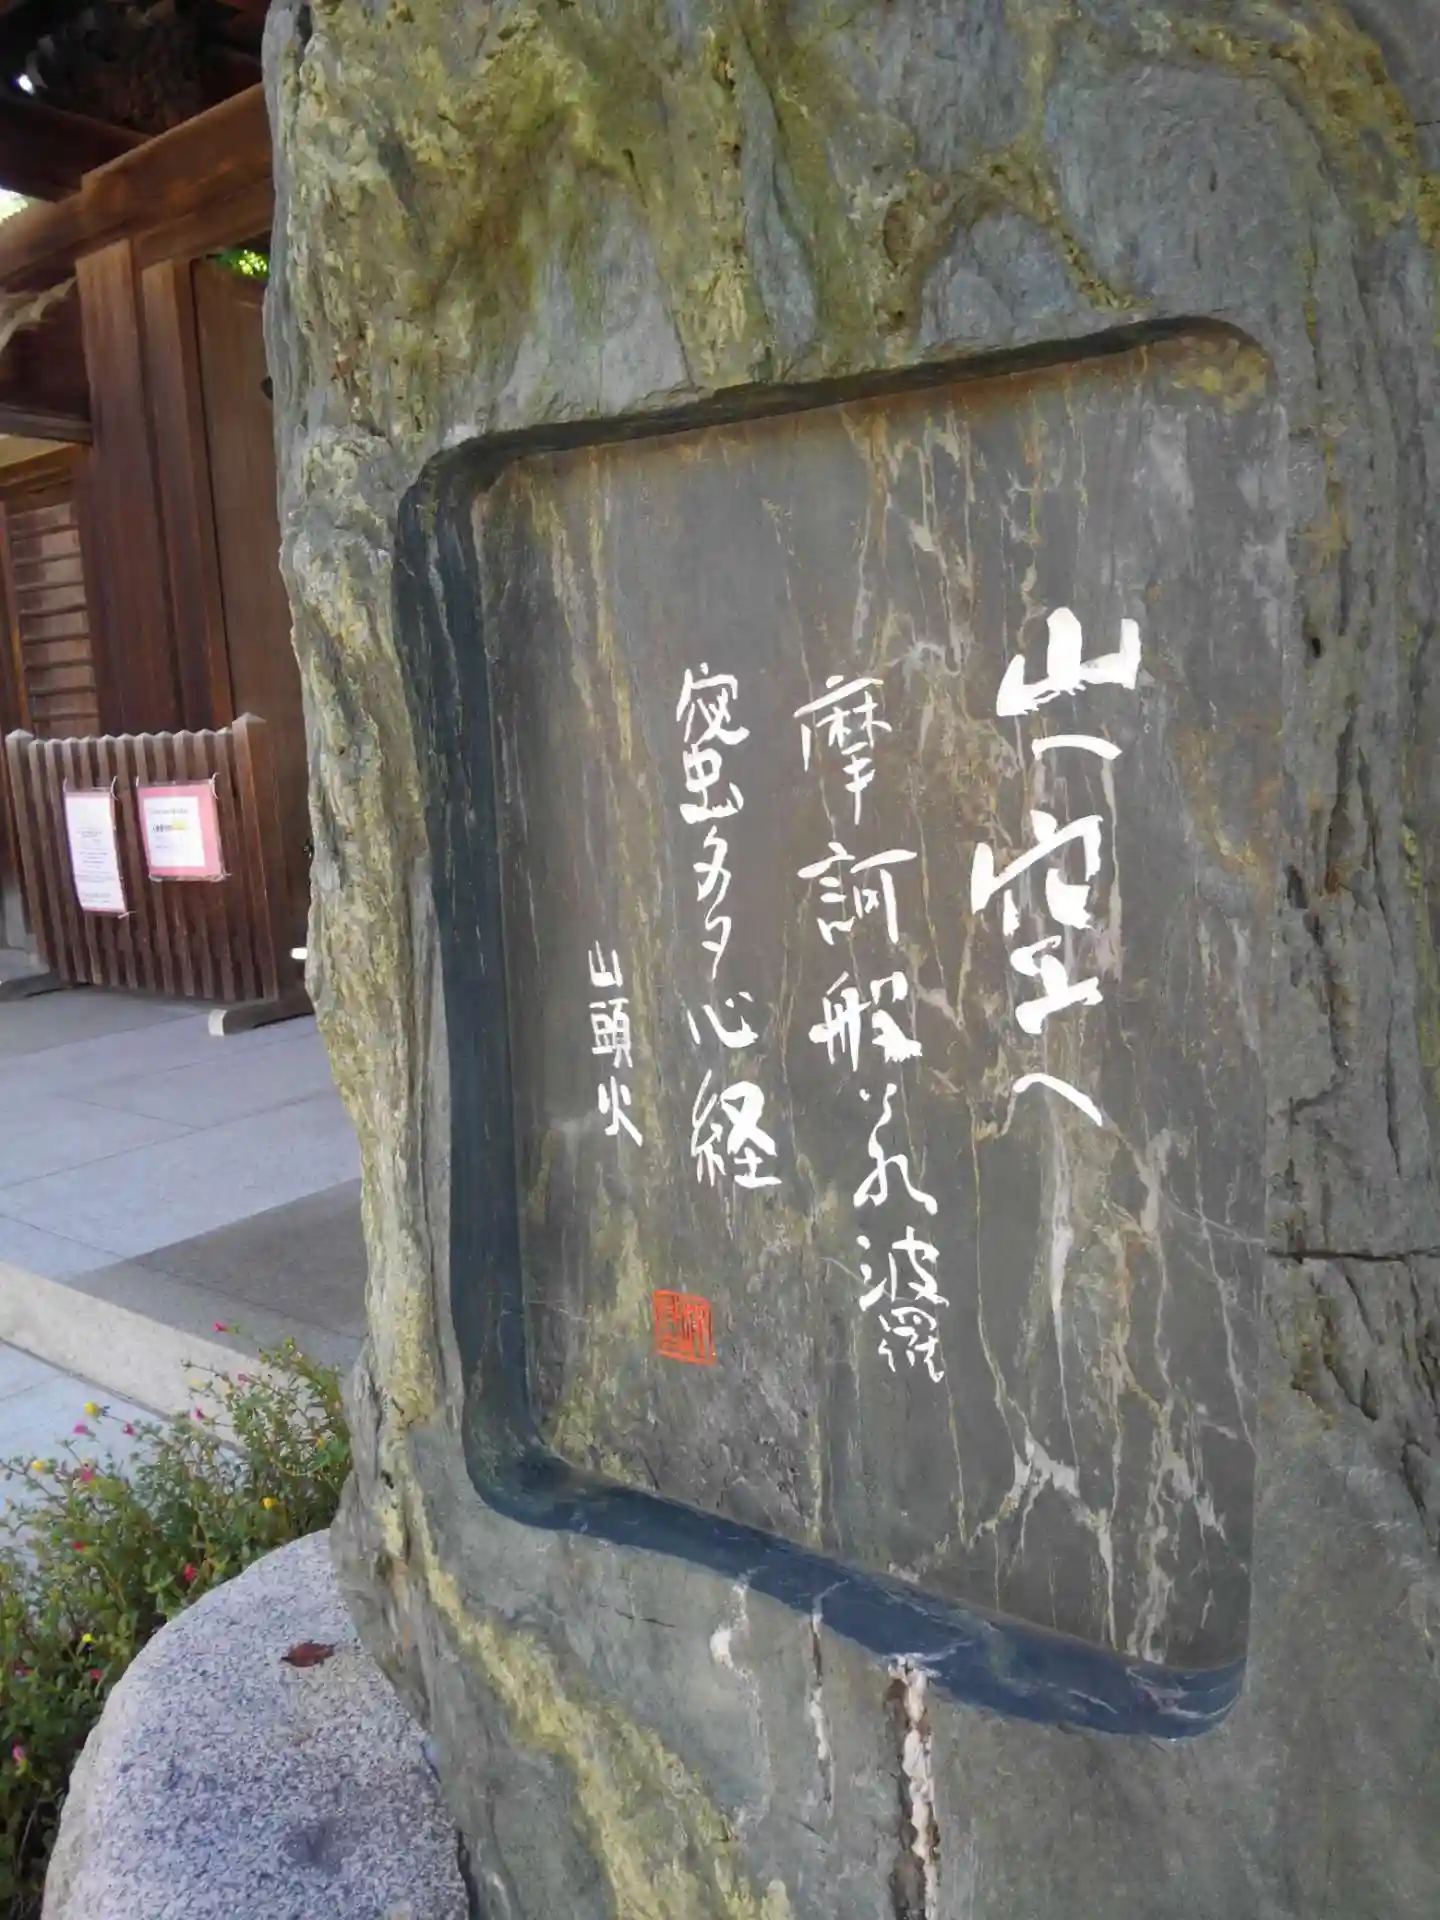 山へ空へ
摩訶般若波羅
密多心経
山頭火